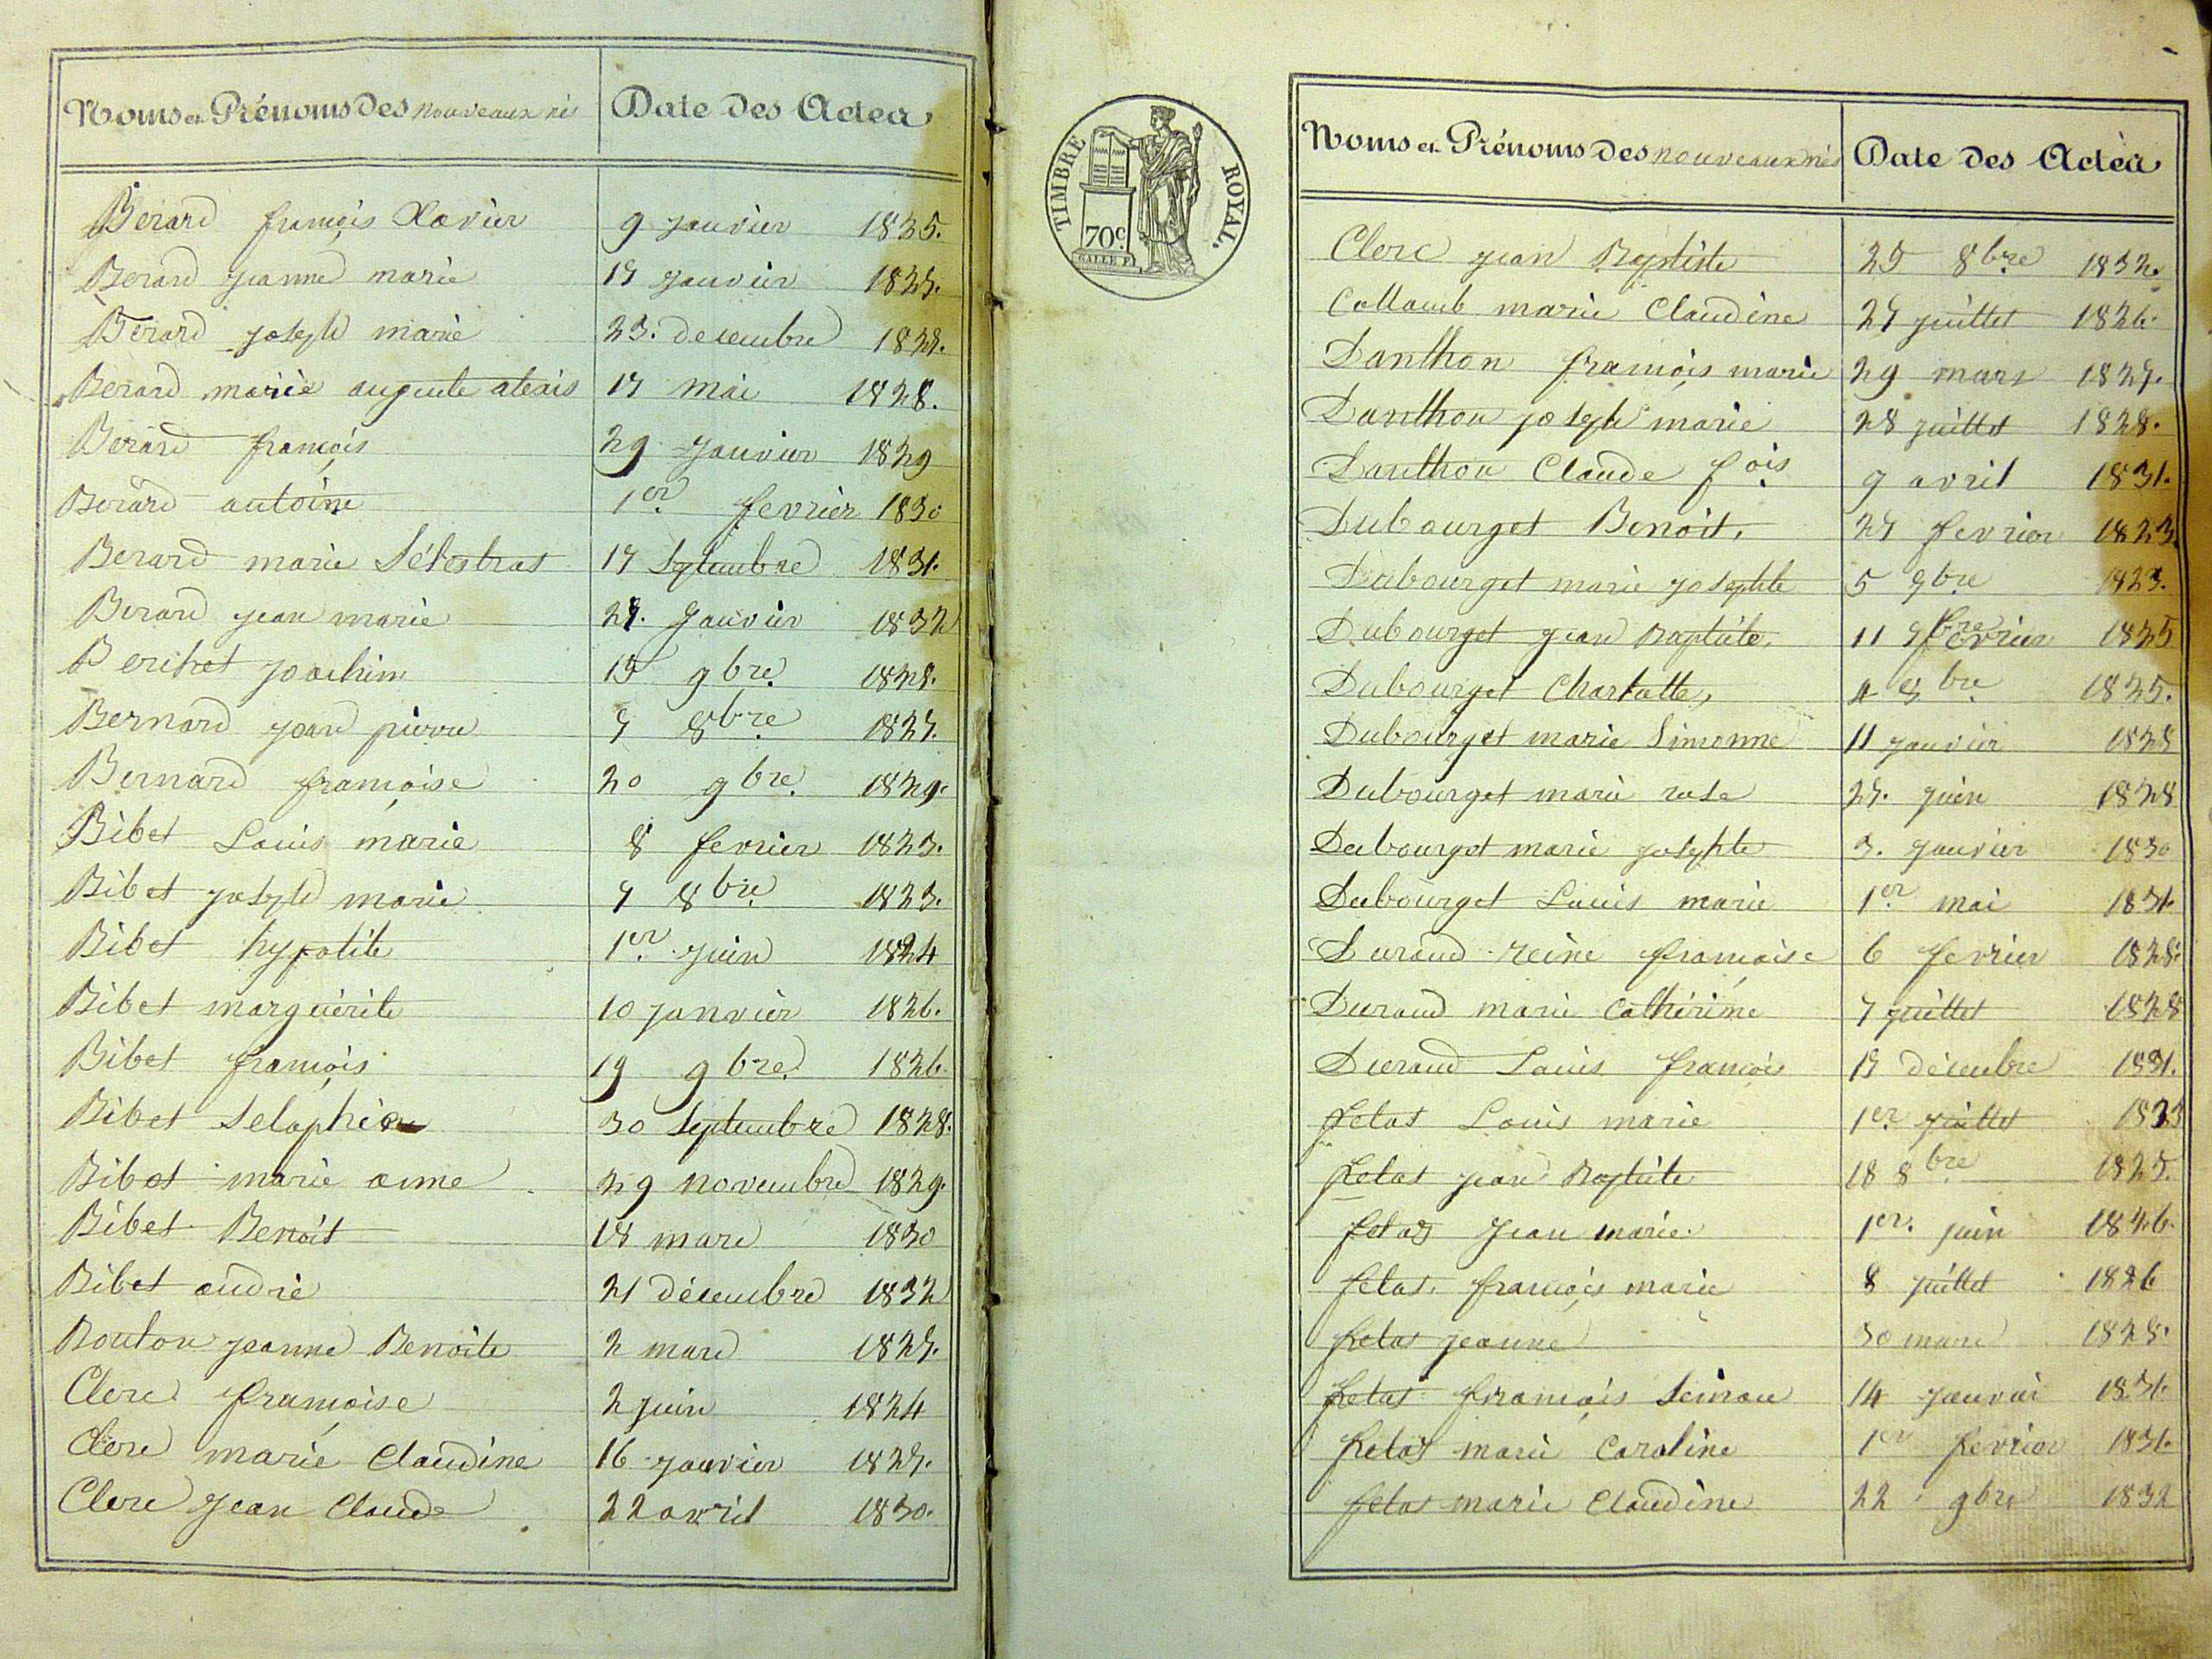 Noms et Prénoms Des nouveaux nés Date Des Actes
Berard françois Xavier 9 janvier 1825.
Berard jeanne marie 17 janvier 1827.
Berard joseph marie 23. decembre 1827.
Berard marie auguste alexis 17 mai 1828.
Berard françois 29 janvier 1829
Berard antoine 1er fevrier 1830
Berard marie 17 septembre 1831.
Berard jean marie 27. janvier 1832
Berthet joachim 15 9bre 1828.
Bernard jean pierre 7 8bre 1827.
Bernard françoise 20 9bre 1829.
Bibet Louis marie 8 fevrier 1823.
Bibet joseph marie 7 8bre 1823.
Bibet hypolite 1er juin 1824
Bibet marguérite 10 janvier 1826.
Bibet françois 19 9bre 1826.
Bibet 30 septembre 1828.
Bibet marie anne 29 novembre 1829.
Bibet Benoit 18 mars 1830
Bibet andré 21 décembre 1832
Bouton jeanne Benoite 2 mars 1827.
Clerc françoise 2 juin 1824
Clerc marie Claudine 16 janvier 1827.
Clerc jean Claude 22 avril 1830.
TIMBRE ROYAL.
70c.
Noms et Prénoms Des nouveaux nés Date Des Actes
Clerc jean Baptiste 25 8bre 1832.
Collomb marie Claudine 27 juillet 1826.
Danthon françois marie 29 mars 1827.
Danthon joseph marie 28 juillet 1828.
Danthon Claude fois 9 avril 1831.
Dubourget Benoit. 27 fevrier 1823.
Dubourget marie josephte 5 9bre 1823.
Dubourget jean Baptiste. 11 fevrier 1825
Dubourget Charlotte, 4 8bre 1825.
Dubourget marie Simonne 11 janvier 1828
Dubourget marie rose 27. juin 1828
Dubourget marie josephte 3. janvier 1830
Dubourget Louis marie 1er mai 1831.
Durand reine françoise 6 fevrier 1828.
Durand marie Cathérine 7 juillet 1828
Durand Louis françois 19 décembre 1831.
fetas Louis marie 1er juillet 1823
fetas jean Baptiste 18 8bre 1825.
fetas jean marie. 1er. juin 1826.
fetas françois marie 8 juillet 1826
fetas jeanne 30 mars 1828.
fetas françois Simon 14 janvier 1831.
fetas marie Caroline 1er fevrier 1831.
fetas marie Claudine 22 9bre 1832